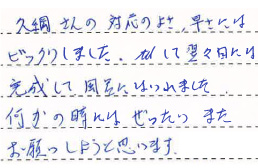 久綱さんの対応のよさ、早さには
ビックリしました。そして翌々日には
完成して風呂にはいれました。
何かの時にはぜったい また
お願いしようと思います。